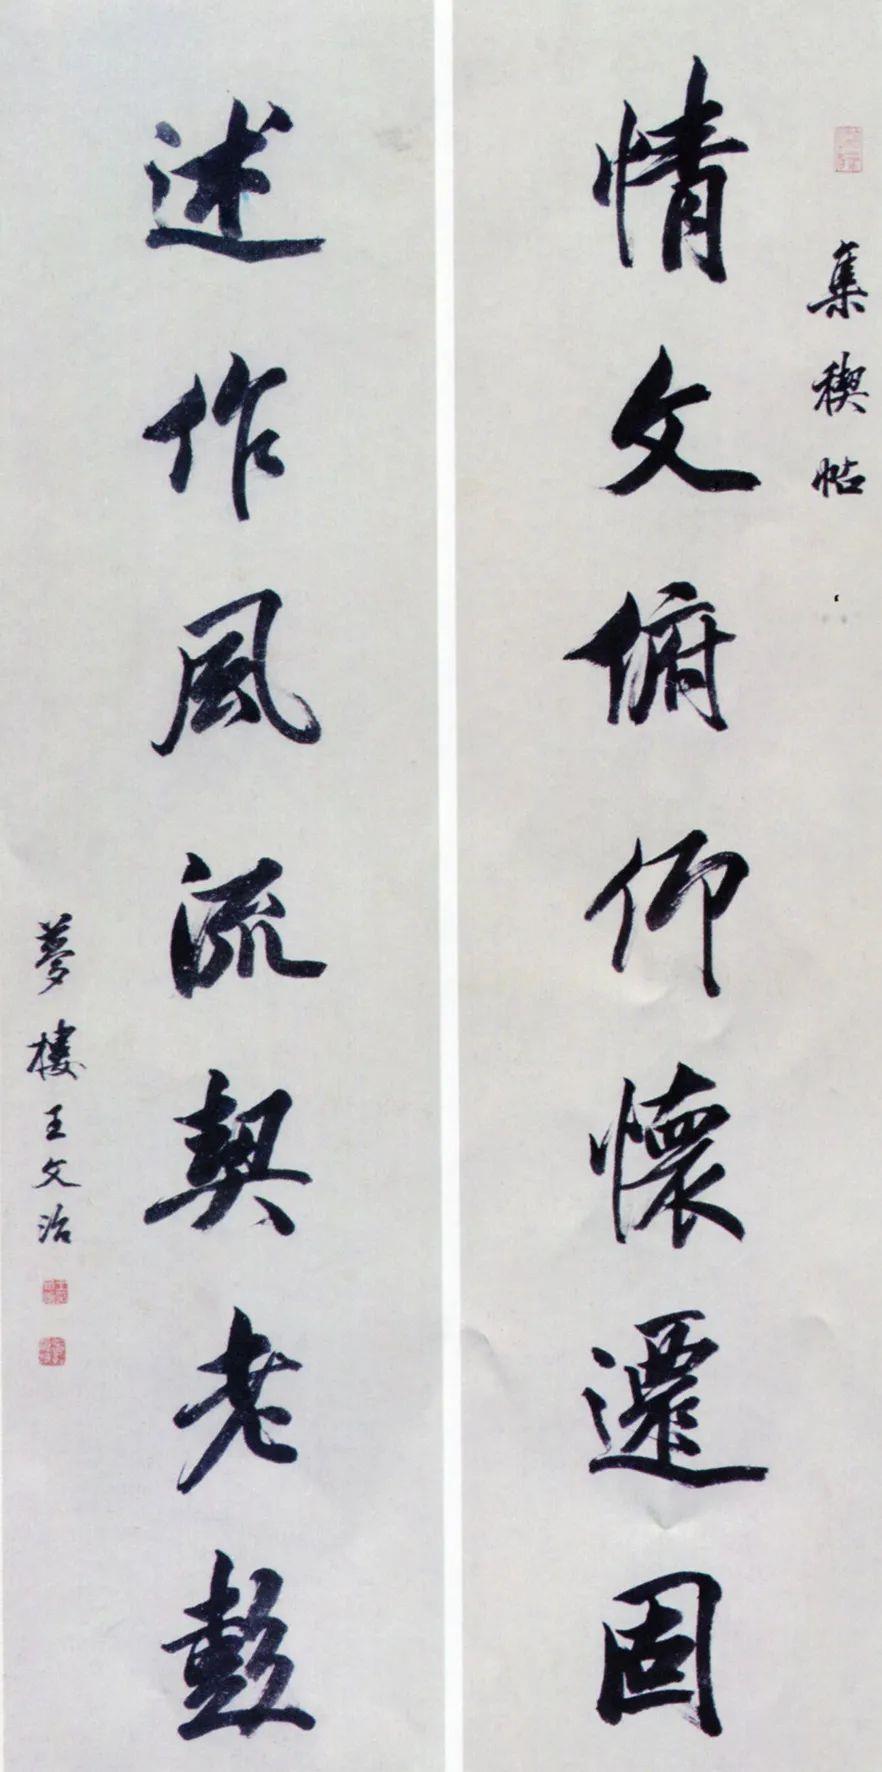 集稧帖
情文俯仰懷遷固
述作風流契老彭
夢樓王文治